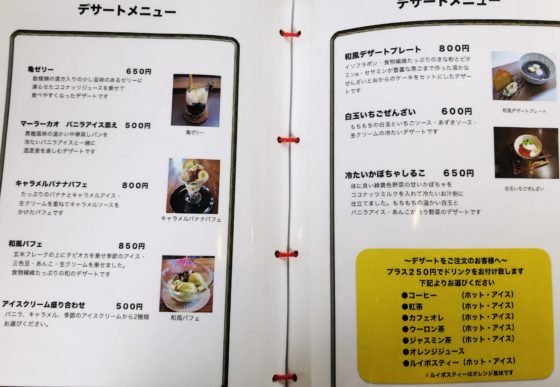 デザートメニュー
亀ゼリー 650円
数種類の漢方入りの少し苦味のあるゼリーに
凍らせたココナッツジュースを乗せて
食べやすくなったデザートです
亀ゼリー
マーラーカオ バニラアイス添え 500円
黒糖風味の温かい中華蒸しパンを
冷たいバニラアイスと一緒に
温度差を楽しむデザートです
キャラメルバナナパフェ 800円
たっぷりのバナナとキャラメルアイス・
生クリームを重ねてキャラメルソースを
かけたパフェです
キャラメルバナナパフェ
和風パフェ 850円
玄米フレークの上にタピオカを乗せ季節のアイス・
三色白玉・あんこ・生クリームを乗せました。
食物繊維たっぷりの和のデザートです
和風パフェ
アイスクリーム盛り合わせ 500円
バニラ、キャラメル、季節のアイスクリームから2種類
お選びください。
デザートメニュー
和風デザートプレート 800円
イソフラボン・食物繊維たっぷりのきな粉とビタ
ミンe・セサミンが豊富な黒ごまで作った温かな
ぜんざいとおからのケーキをセットにしたデザー
トです
和風デザートプレート
白玉いちごぜんざい 600円
もちもちの白玉といちごソース・あずきソース・
生クリームの冷たいデザートです
白玉いちごぜんざい
冷たいかぼちゃしるこ 650円
体に良い緑黄色野菜の甘いかぼちゃを
ココナッツミルクを入れて冷たいお汁粉に
仕立てました。もちもちの温かい白玉と
バニラアイス・あんこが合う野菜のデザートです
〜デザートをご注文のお客様へ〜
プラス250円でドリンクをお付け致します
下記よりお選びください
●コーヒー (ホット・アイス)
●紅茶 (ホット・アイス)
●カフェオレ (ホット・アイス)
●ウーロン茶 (ホット・アイス)
●ジャスミン茶 (ホット・アイス)
●オレンジジュース
●ルイボスティー(ホット・アイス)
※ルイボスティーはオレンジ風味です